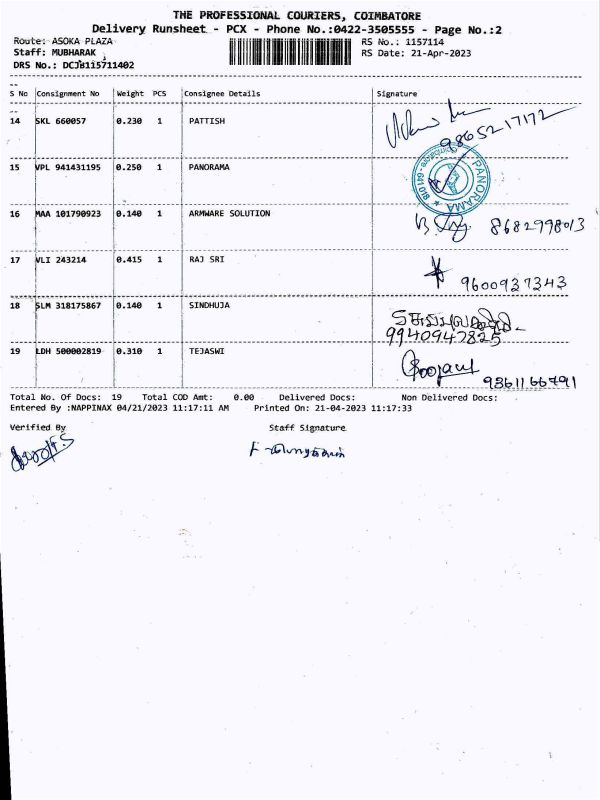 THE PROFESSIONAL COURIERS, COIMBATORE
Delivery Runsheet - PCX - Phone No.:0422-3505555 - Page No.:2
Route: ASOKA PLAZA RS No.: 1157114
Staff: MUBHARAK RS Date: 21-Apr-2023
DRS No.: DCJB115711402
S No Consignment No Weight PCS Consignee Details Signature
14 SKL 660057 0.230 1 PATTISH
9865217172
15 VPL 941431195 0.250 1 PANORAMA
PANORAMA
16 MAA 101790923 0.140 1 ARMWARE SOLUTION
8682998013
17 VLI 243214 0.415 1 RAJ SRI
9600937343
18 SLM 318175867 0.140 1 SINDHUJA
9940947825
19 LDH 500002819 0.310 1 TEJASWI
9361166791
Total No. Of Docs: 19 Total COD Amt: 0.00 Delivered Docs: Non Delivered Docs:
Entered By :NAPPINAX 04/21/2023 11:17:11 AM Printed On: 21-04-2023 11:17:33
Verified By Staff Signature